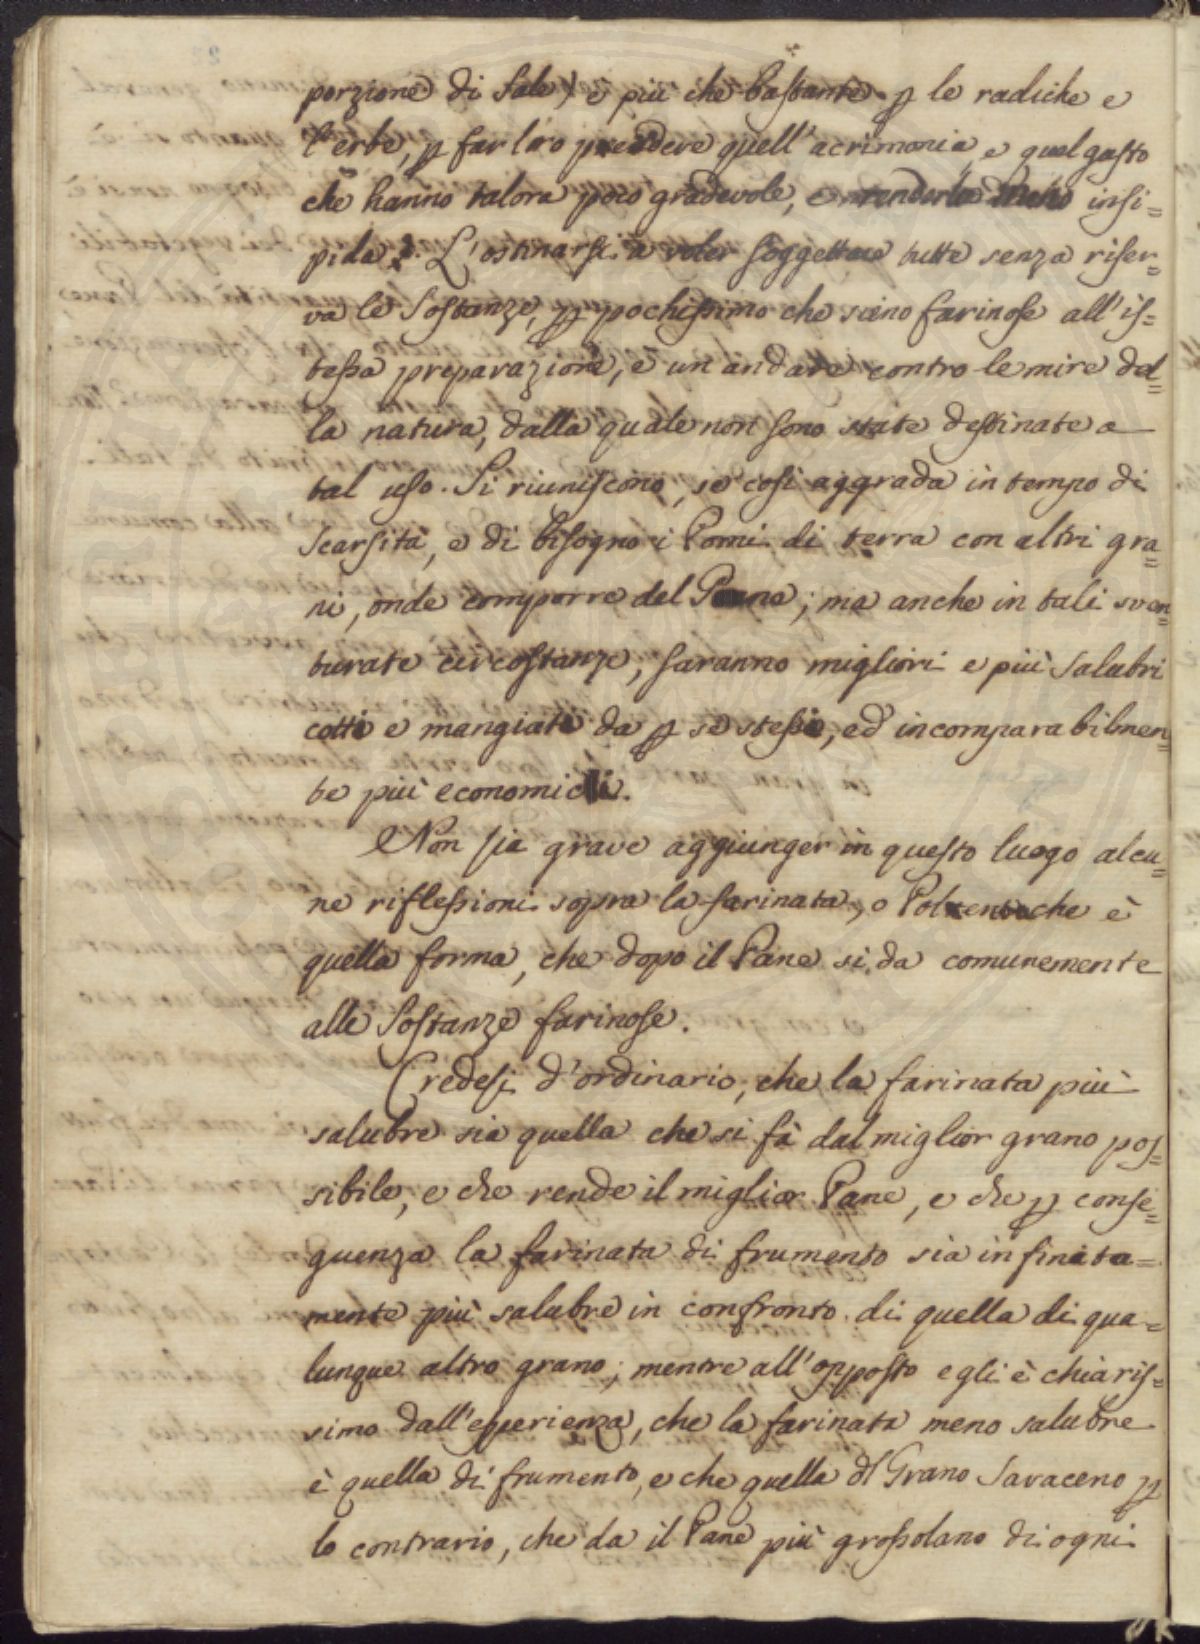 porzione di Sale) è più che bastante p le radiche e
l'erbe, p far loro perdere quell'acrimonia, e quel gusto
che hanno talora poco gradevole, e renderla meno insi=
pida. L'ostinarsi a voler soggettare tutte senza riser=
va le Sostanze, p pochissimo che sieno farinose all'is=
tessa preparazione, è un andare contro le mire del=
la natura, dalla quale non sono state destinate a
tal uso. Si riuniscono, se così aggrada in tempo di
Scarsità, e di bisogno i Pomi di terra con altri gra=
ni, onde comporre del Pane; ma anche in tali sven=
turate circostanze, saranno migliori e più salubri
cotti e mangiati da p se stessi, ed incomparabilmen=
te più economici.
Non sia grave aggiunger in questo luogo alcu=
ne riflessioni sopra la farinata, o Polenta che è
quella forma, che dopo il Pane si da comunemente
alle Sostanze farinose.
Credesi d'ordinario, che la farinata più
salubre sia quella che si fà dal miglior grano pos=
sibile, e che rende il miglior Pane, e che p conse=
guenza la farinata di frumento sia infinita=
mente più salubre in confronto di quella di qua=
lunque altro grano; mentre all'opposto egli è chiaris=
simo dall'esperienza, che la farinata meno salubre
è quella di frumento, e che quella dl Grano Saraceno p
lo contrario, che da il Pane più grossolano di ogni